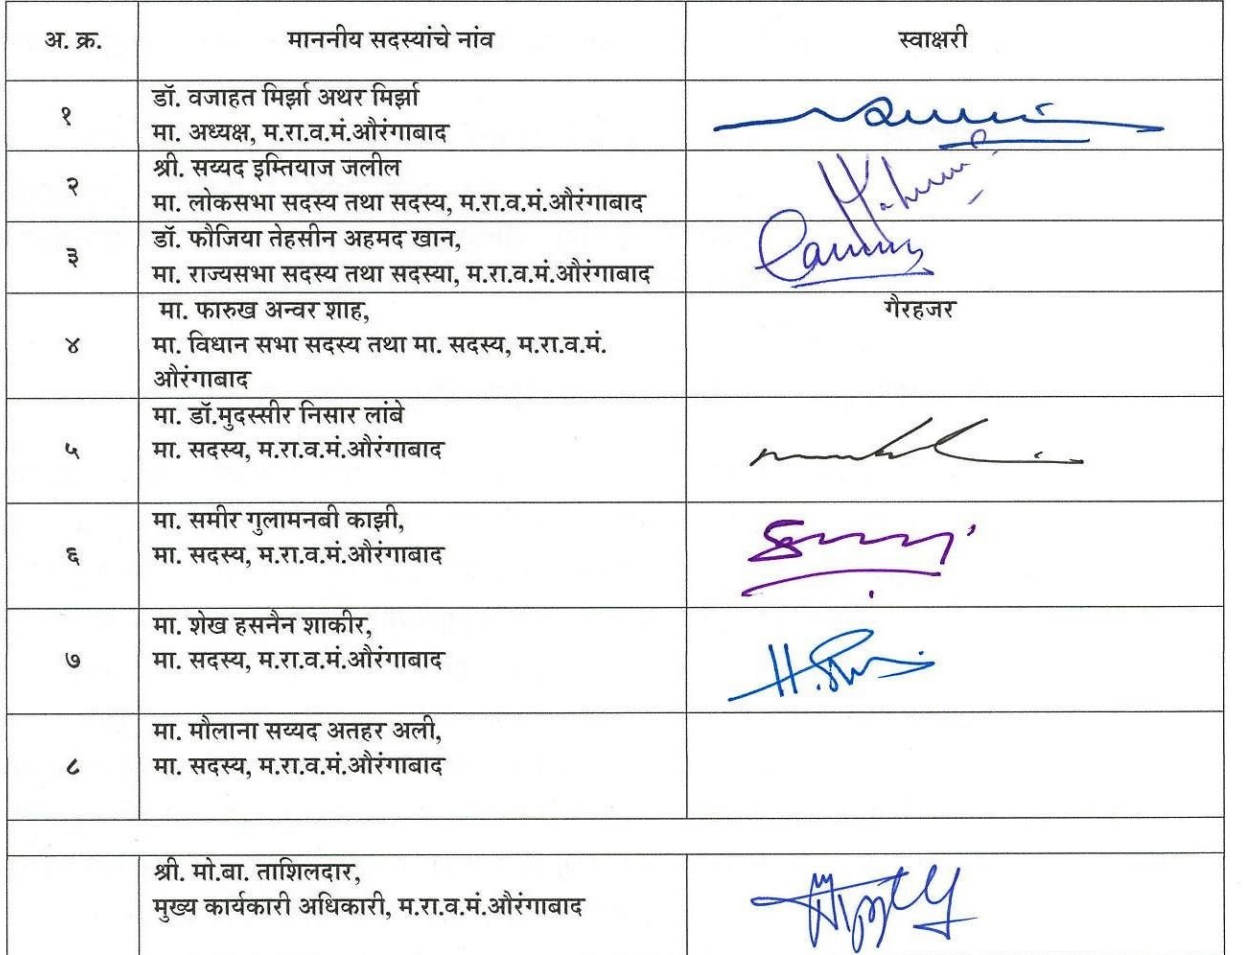 अ. क्र. माननीय सदस्यांचे नांव स्वाक्षरी
१ डॉ. वजाहत मिर्झा अथर मिर्झा
मा. अध्यक्ष, म.रा.व.मं.औरंगाबाद
२ श्री. सय्यद इम्तियाज जलील
मा. लोकसभा सदस्य तथा सदस्य, म.रा.व.मं.औरंगाबाद
३ डॉ. फौजिया तेहसीन अहमद खान,
मा. राज्यसभा सदस्य तथा सदस्या, म.रा.व.मं.औरंगाबाद
४ मा. फारुख अन्वर शाह, गैरहजर
मा. विधान सभा सदस्य तथा मा. सदस्य, म.रा.व.मं.
औरंगाबाद
५ मा. डॉ.मुदस्सीर निसार लांबे
मा. सदस्य, म.रा.व.मं.औरंगाबाद
६ मा. समीर गुलामनबी काझी,
मा. सदस्य, म.रा.व.मं.औरंगाबाद
७ मा. शेख हसनैन शाकीर,
मा. सदस्य, म.रा.व.मं.औरंगाबाद
८ मा. मौलाना सय्यद अतहर अली,
मा. सदस्य, म.रा.व.मं.औरंगाबाद
श्री. मो.बा. ताशिलदार,
मुख्य कार्यकारी अधिकारी, म.रा.व.मं.औरंगाबाद